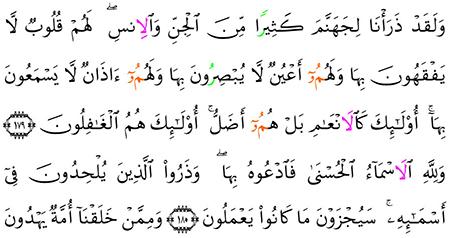 وَلَقَدْ ذَرَأْنَا لِجَهَنَّمَ كَثِيرًا مِّنَ ٱلْجِنِّ وَٱلِانسِ ۖ لَهُمْ قُلُوبٌ لَّا
يَفْقَهُونَ بِهَا وَلَهُمُۥٓ أَعْيُنٌ لَّا يُبْصِرُونَ بِهَا وَلَهُمُۥٓ ءَاذَانٌ لَّا يَسْمَعُونَ
بِهَآ ۚ أُو۟لَٰٓئِكَ كَٱلَانْعَٰمِ بَلْ هُمُۥٓ أَضَلُّ ۚ أُو۟لَٰٓئِكَ هُمُ ٱلْغَٰفِلُونَ ١٧٩
وَلِلَّهِ ٱلَاسْمَآءُ ٱلْحُسْنَىٰ فَٱدْعُوهُ بِهَا ۖ وَذَرُوا۟ ٱلَّذِينَ يُلْحِدُونَ فِىٓ
أَسْمَٰٓئِهِۦ ۚ سَيُجْزَوْنَ مَا كَانُوا۟ يَعْمَلُونَ ١٨٠ وَمِمَّنْ خَلَقْنَآ أُمَّةٌ يَهْدُونَ